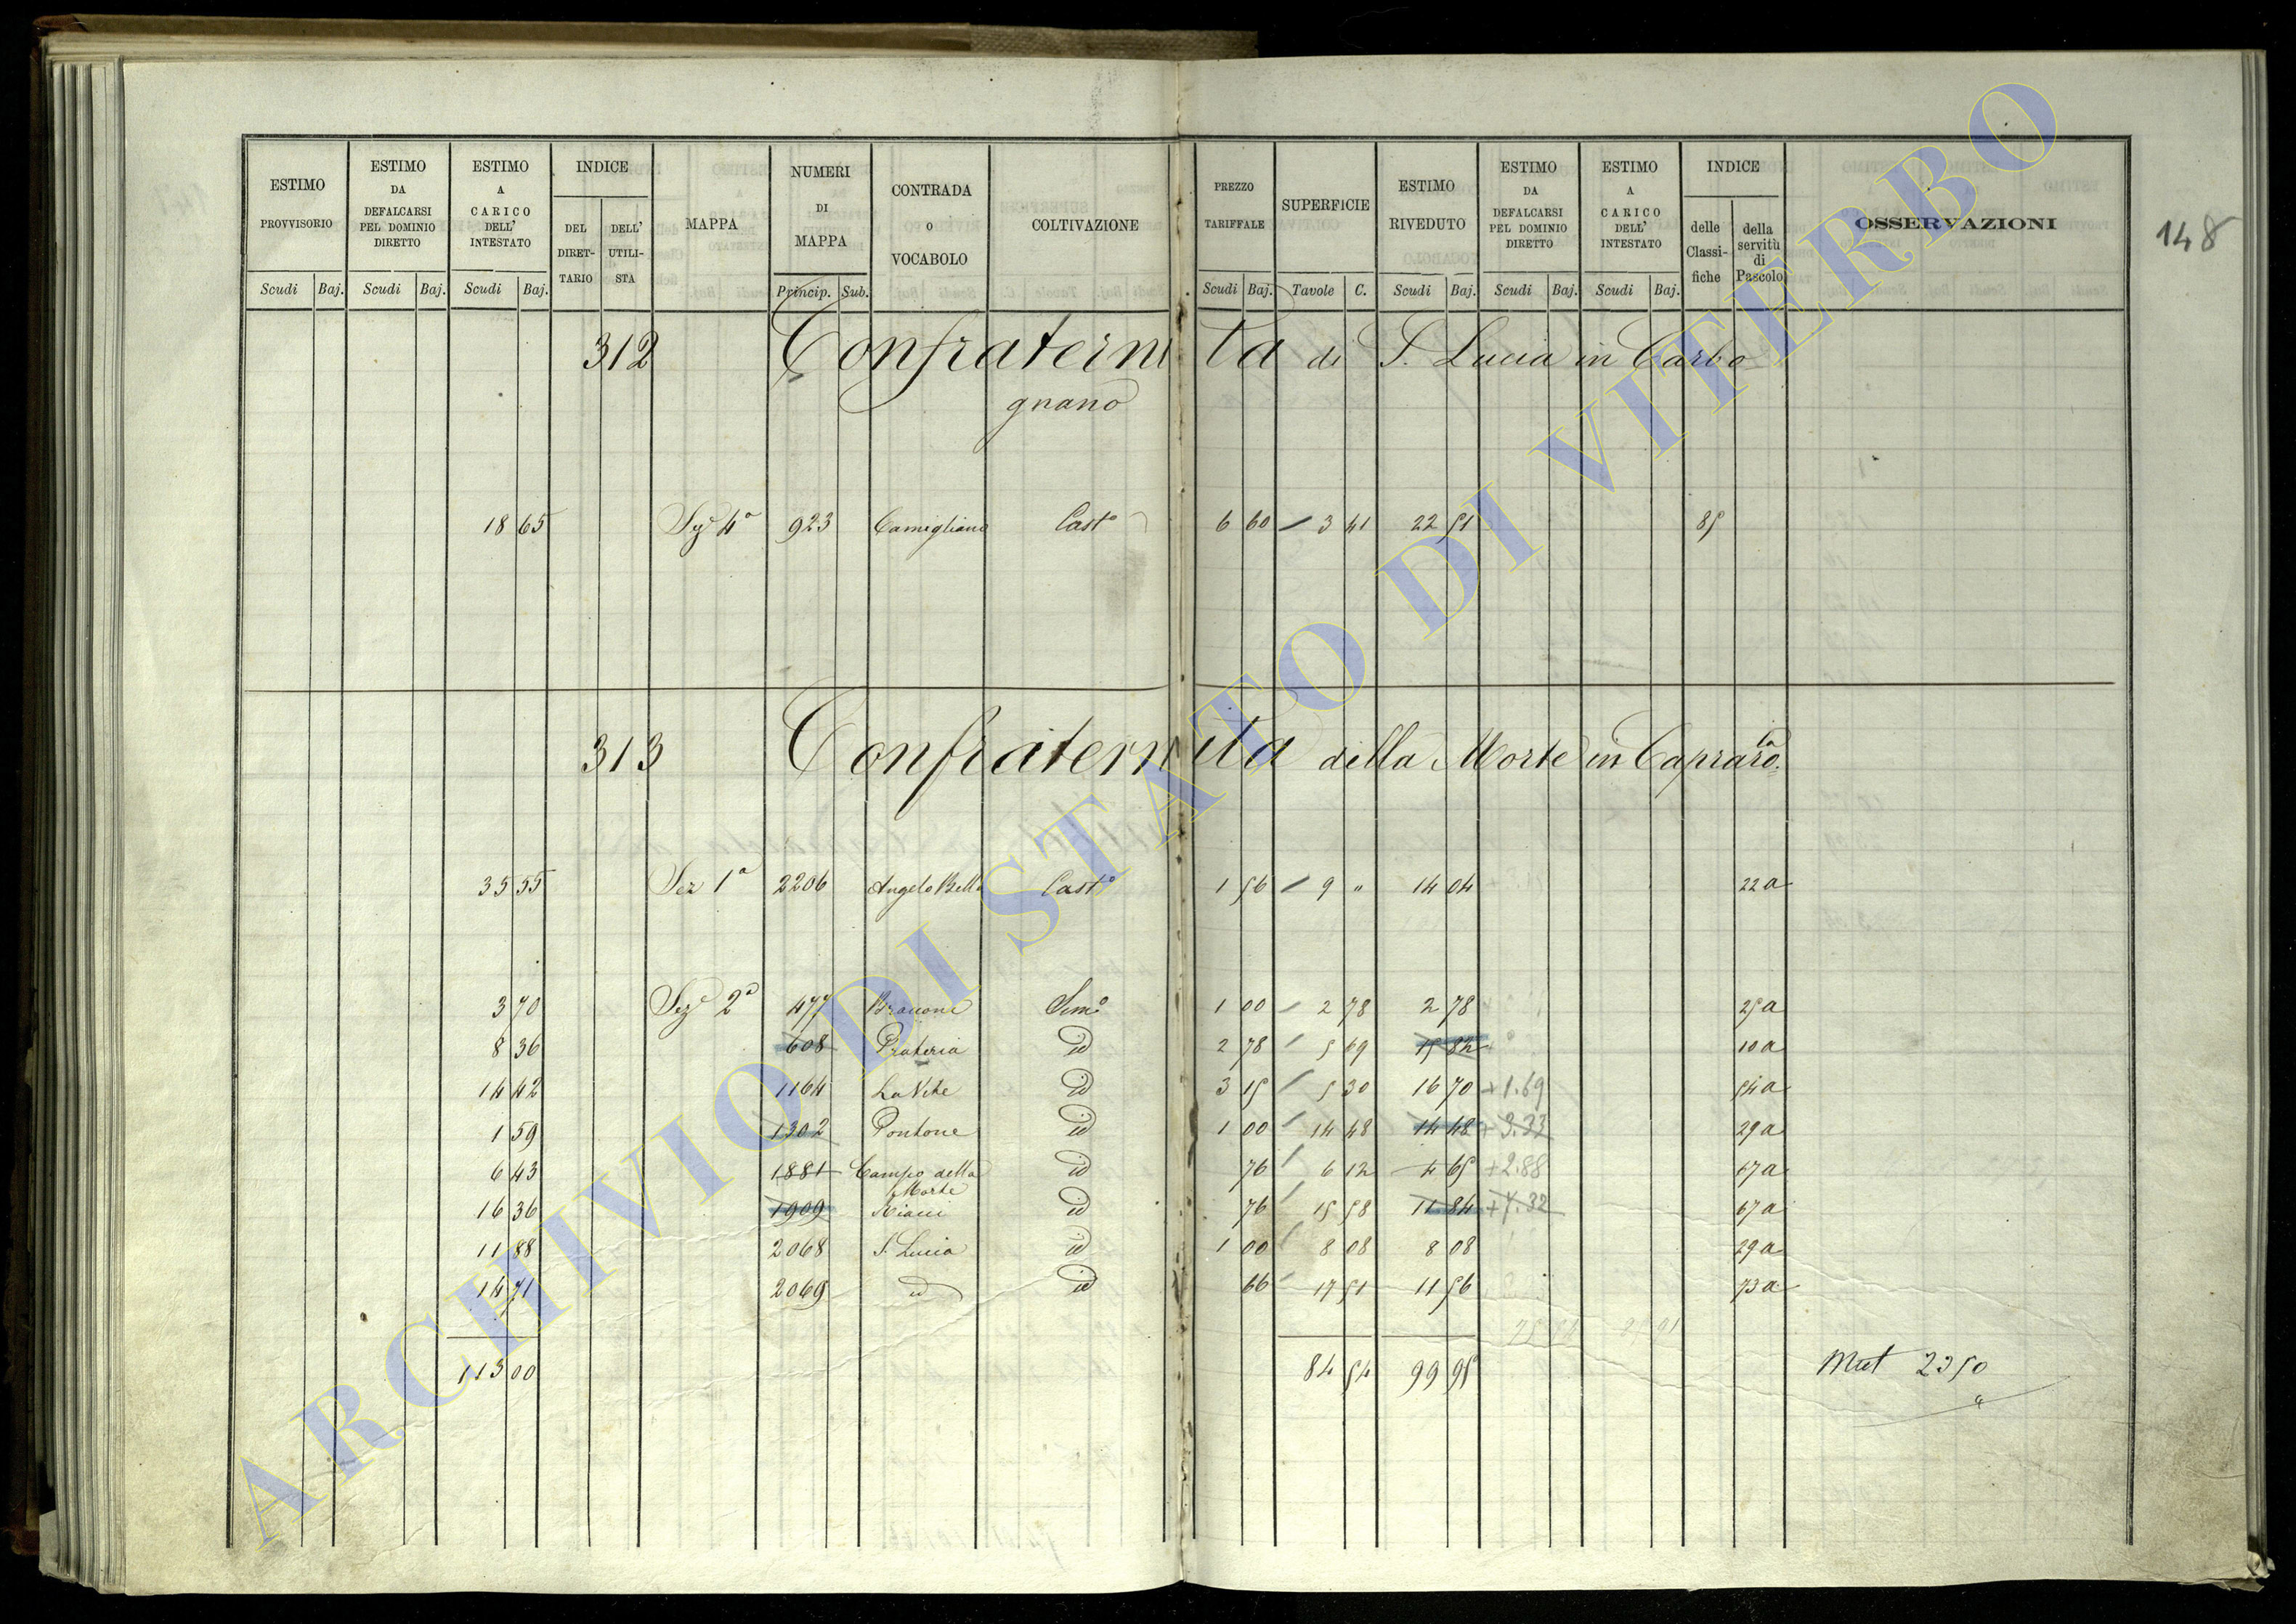 ESTIMO PROVVISORIO Scudi Baj.
ESTIMO DA DEFALCARSI PEL DOMINIO DIRETTO Scudi Baj.
ESTIMO A CARICO DELL' INTESTATO Scudi Baj.
INDICE DEL DIRET-TARIO DELL' UTILI-STA
MAPPA
NUMERI DI MAPPA Princip. Sub.
CONTRADA O VOCABOLO
COLTIVAZIONE
PREZZO TARIFFALE Scudi Baj.
SUPERFICIE Tavole C.
ESTIMO RIVEDUTO Scudi Baj.
ESTIMO DA DEFALCARSI PEL DOMINIO DIRETTO Scudi Baj.
ESTIMO A CARICO DELL' INTESTATO Scudi Baj.
INDICE delle Classi-fiche della servitù di Pascolo
OSSERVAZIONI
148
312 Confraternita di S. Lucia in Carbo
gnano
18 65 Sez 4a 923 Camigliano Casto 6 60 3 41 22 51 85
313 Confraternita della Morte in Caprarola
35 55 Sez 1a 2206 Angelo Bello Casto 1 56 9 " 14 04 22 a
3 70 Sez 2a 477 Semo 1 00 2 78 2 78 25 a
8 36 608 Prateria id 2 78 5 69 15 82 10 a
14 42 1164 La Vite id 3 15 5 30 16 70 +1.69 54 a
1 59 1302 Pontone id 1 00 14 48 14 48 +3.33 29 a
6 43 1881 Campo della Morte id 76 6 12 4 65 +2.88 67 a
16 36 1909 id 76 15 58 11 84 +7.32 67 a
11 88 2068 S. Lucia id 1 00 8 08 8 08 29 a
14 71 2069 id id 66 17 51 11 56 73 a
113 00 84 54 99 95 2350
ARCHIVIO DI STATO DI VITERBO